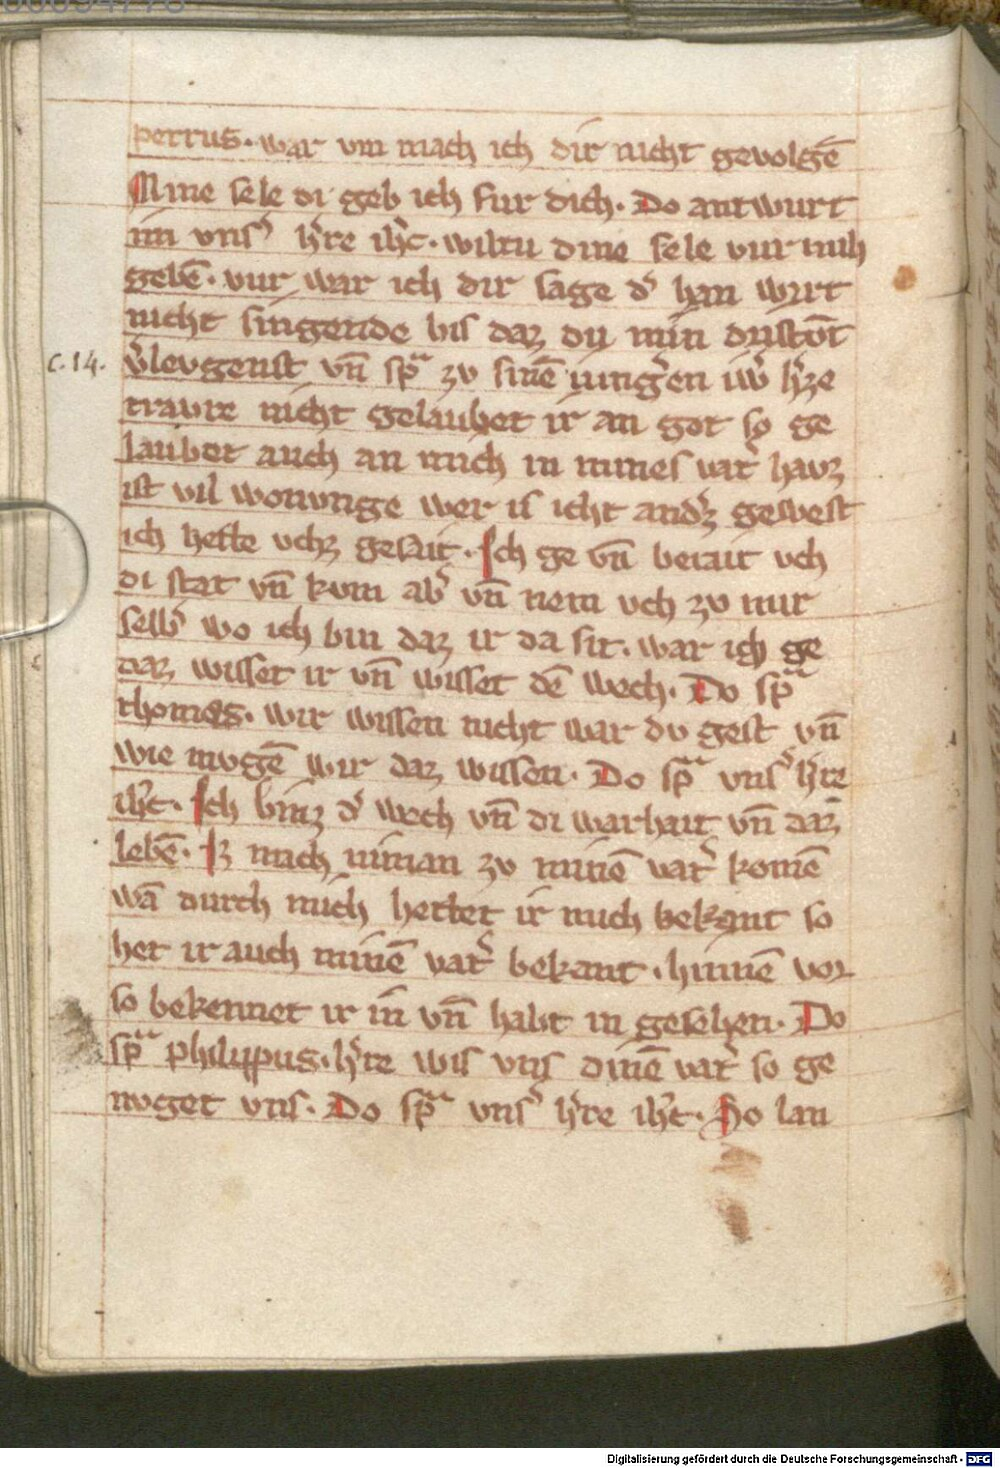 petrus. war vm mach ich dir nicht geuolgē
Mine sele di geb ich fur dich. Do antwurt
im vnsˀ hˀre ihˀc. wiltu dine sele vur mih
gebē. vur war ich dir sage dˀ han wirt
nicht singende bis daz du min dristōt
c. 14.
vˀlevgenst vn̄ spᵃ zv sinē iungˀen iwˀ hˀze
travre nicht gelaubet ir an got so ge
laubet auch an mich in mines vatˀ hauz
ist vil wonunge wer is icht andˀz gewest
ich hette vchz gesait. Ich ge vn̄ berait vch
di stat vn̄ kom abˀ vn̄ nem vch zv mir
selbˀ wo ich bin daz ir da sit. war ich ge
daz wisset ir vn̄ wisset dē wech. Do spᵃ
thomas. wir wissen nicht war du gest vn̄
wie mvgē wir daz wissen. Do spᵃ vnsˀ hˀre
ihˀc. Ich binz dˀ wech vn̄ di warhait vn̄ daz
lebē. Iz mich niman zv minē vatˀ komē
wā durch mich hettet ir mich bekant so
het ir auch minē vatˀ bekant. hinnē vor
so bekennet ir in vn̄ habt in gesehen. Do
spᵃ philippus. hˀre wis vns dinē vatˀ so ge
nvget vns. Do spᵃ vnsˀ hˀre ihˀc. So lan
Digitalisierung gefördert durch die Deutsche Forschungsgemeinschaft - DFG